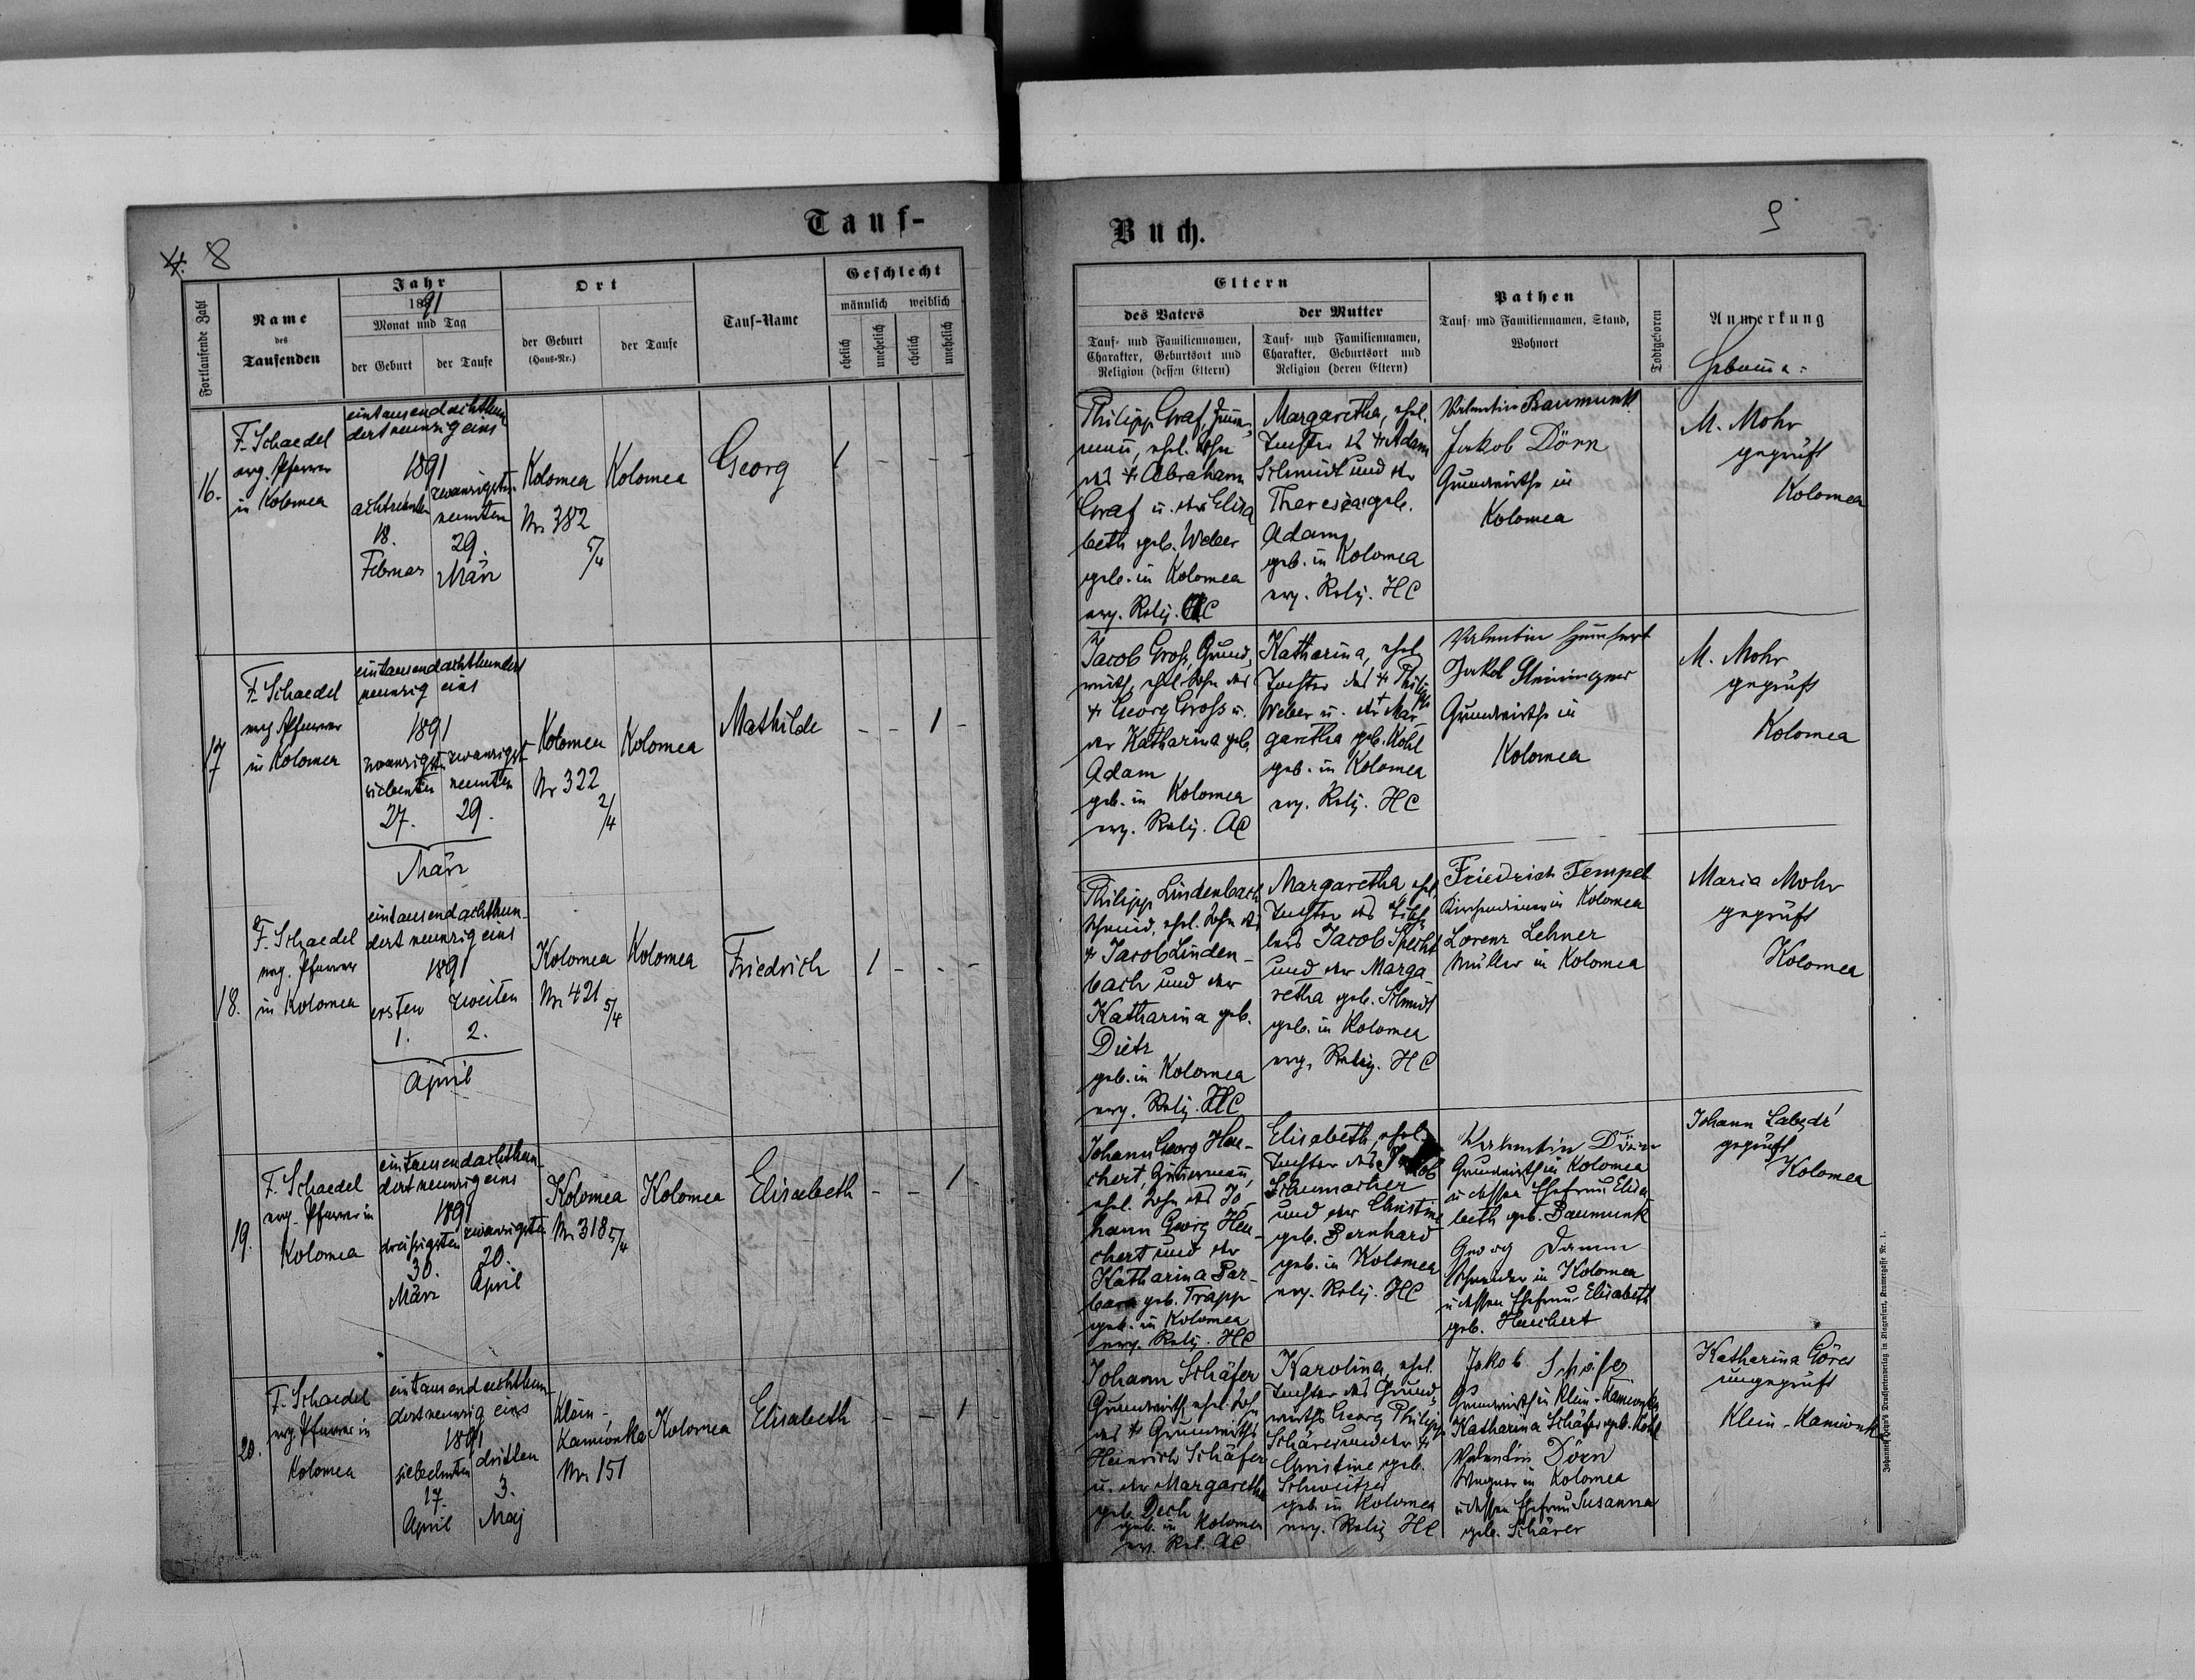 Tauf-
Buch.
8
9
Fortlaufende Zahl
Name
des
Taufenden
Jahr
1891
Monat und Tag
der Geburt
der Taufe
Ort
der Geburt
(Haus-Nr.)
der Taufe
Tauf-Name
Geschlecht
männlich weiblich
ehelich
unehelich
ehelich
unehelich
Eltern
des Vaters
Tauf- und Familiennamen,
Charakter, Geburtsort und
Religion (dessen Eltern)
der Mutter
Tauf- und Familiennamen,
Charakter, Geburtsort und
Religion (deren Eltern)
Pathen
Tauf- und Familiennamen, Stand,
Wohnort
Todtgeboren
Anmerkung
16.
F. Schaedel
evg. Pfarrer
in Kolomea
eintausendachthun
dertneunzigeins
1891
achtzehnten
18.
Februar
zwanzigsten
neunten
29.
März
Kolomea
Nr. 382
5/4
Kolomea
Georg
1 - - -
Philipp Graf,
ehel. Sohn
des + Abraham
Graf u. der Elisa
beth geb. Weber
geb. in Kolomea
evg. Relig. HC
Margaretha, ehel.
Tochter des + Adam
Schmidt und der
Theresia geb.
Adam
geb. in Kolomea
evg. Relig. HC
Valentin Baumunk
Jakob Dörn
Grundwirthe in
Kolomea
M. Mohr
geprüft
Kolomea
17
F. Schaedel
evg Pfarrer
in Kolomea
eintausendachthundert
neunzig eins
1891
zwanzigsten
siebenten
27.
zwanzigst
neunten
29.
März
Kolomea
Nr 322
2/4
Kolomea
Mathilde
- - 1 -
Jacob Gross, Grund
wirth, ehel. Sohn des
+ Georg Gross u.
der Katharina geb.
Adam
geb. in Kolomea
evg. Relig. AC
Katharina, ehel
Tochter des + Philipp
Weber u. der + Mar
garetha geb. Kohl
geb. in Kolomea
evg. Relig. HC
Valentin
Jakob Steininger
Grundwirthe in
Kolomea
M. Mohr
geprüft
Kolomea
18.
F. Schaedel
evg. Pfarrer
in Kolomea
eintausendachthun-
dert neunzigeins
1891
ersten
1.
zweiten
2.
April
Kolomea
Nr. 421
5/4
Kolomea
Friedrich
1 - - -
Philipp Lindenbach
Schmied, ehel. Sohn des
+ Jacob Linden-
bach und der
Katharina geb.
Dietz
geb. in Kolomea
evg. Relig. HC
Margaretha, ehel.
Tochter des Tisch
lers Jacob Specht
und der Marga
retha geb. Schmidt
geb. in Kolomea
evg. Relig. HC
Friedrich Tempel
Kirchendiener in Kolomea
Lorenz Lehner
Müller in Kolomea
Maria Mohr
geprüft
Kolomea
19.
F. Schaedel
evg. Pfarrer in
Kolomea
eintausendachthun-
dertneunzigeins
1891
dreißigsten
30.
März
zwanzigsten
20.
April
Kolomea
Nr. 318 5/4
Kolomea
Elisabeth
- - 1 -
Johann Georg Heu-
chert,
ehel. Sohn des Jo-
hann Georg Heu-
chert und der
Katharina Bar-
bara geb. Trapp
geb. in Kolomea
evg. Relig. HC
Elisabeth, ehel.
Tochter des Jakob
Schumacher
und der Christine
geb. Bernhard
geb. in Kolomea
evg. Relig. HC
Valentin Dörn
Grundwirth in Kolomea
u dessen Ehefrau Elisa
beth geb. Baumunk
Georg Damm
Schneider in Kolomea
u dessen Ehefrau Elisabeth
geb. Heuchert
Johann
geprüft
Kolomea
20.
F. Schaedel
evg Pfarrer in
Kolomea
eintausendachthun-
dertneunzig eins
1891
siebzehnten
17.
April
dritten
3.
Maj
Klein-
Kamionka
Nr. 151
Kolomea
Elisabeth
- - 1 -
Johann Schäfer
Grundwirth ehel. Sohn
des + Grundwirths
Heinrich Schäfer
u. der Margaretha
geb. Dech
geb. in Kolomea
ev. Rel. AC
Karolina, ehel.
Tochter des Grund
wirths Georg Philipp
Schärer und der +
Christine geb.
Schweitzer
geb in Kolomea
evg. Relig HC
Jakob Schäfer
Grundwirth in Klein-Kamionka
Katharina Schäfer geb. Kohl
Valentin Dörn
Wagner in Kolomea
u dessen Ehefrau Susanna
geb. Schärer
Katharina Göres
ungeprüft
Klein-Kamionka